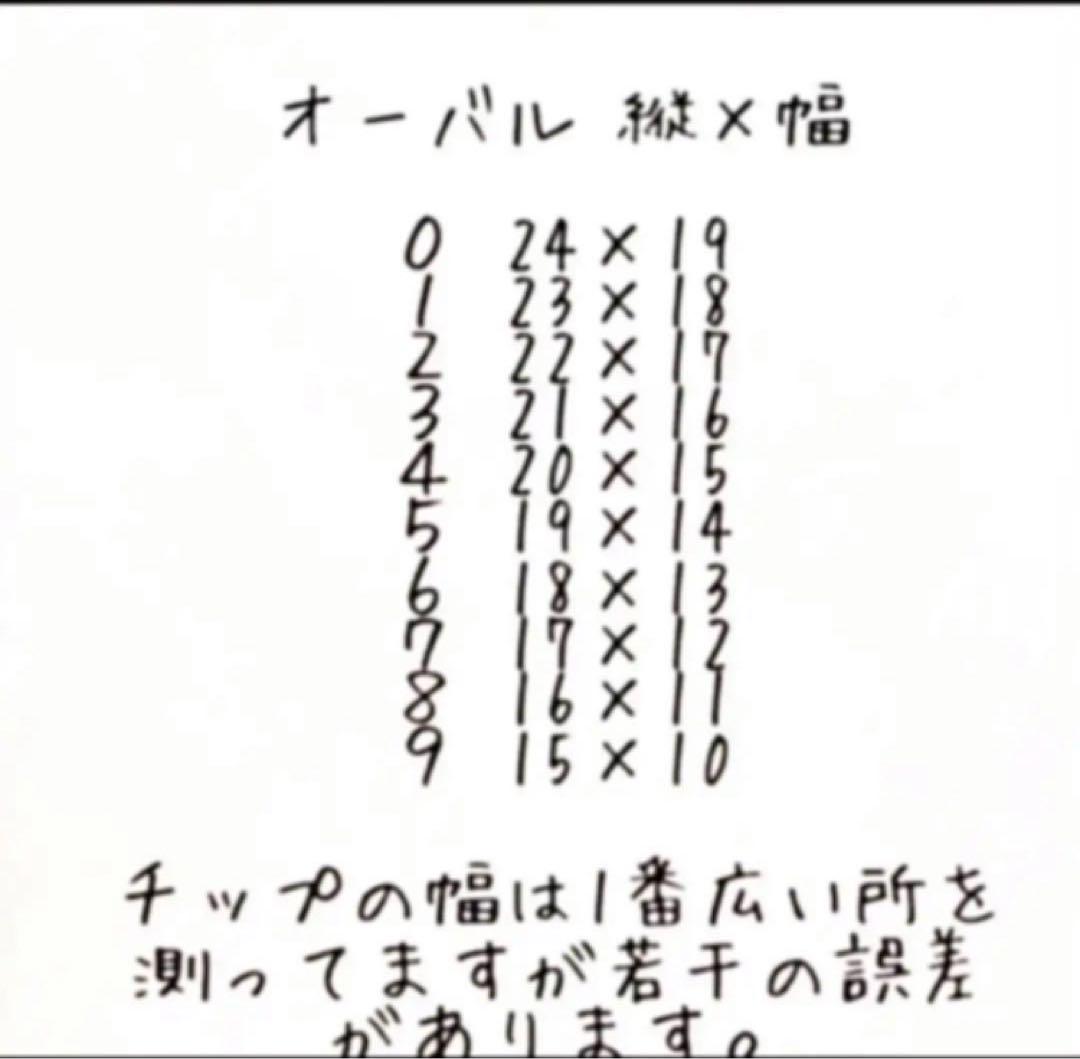 オーバル 縦×幅
0 24×19
1 23×18
2 22×17
3 21×16
4 20×15
5 19×14
6 18×13
7 17×12
8 16×11
9 15×10
チップの幅は1番広い所を
測ってますが若干の誤差
があります。